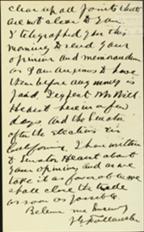 clear up all points that
are not clear to you
I telegraphed you this
morning to send your
opinion and memorandum
as I am anxious to have
then before any money is
paid. I expect Mr Will
Hearst here in a few
days and the Senator
after the elections in
California. I have written
to Senator Hearst about
your opinion and as we
take it as favorable we
shall close the trade
as soon as possible
Believe me